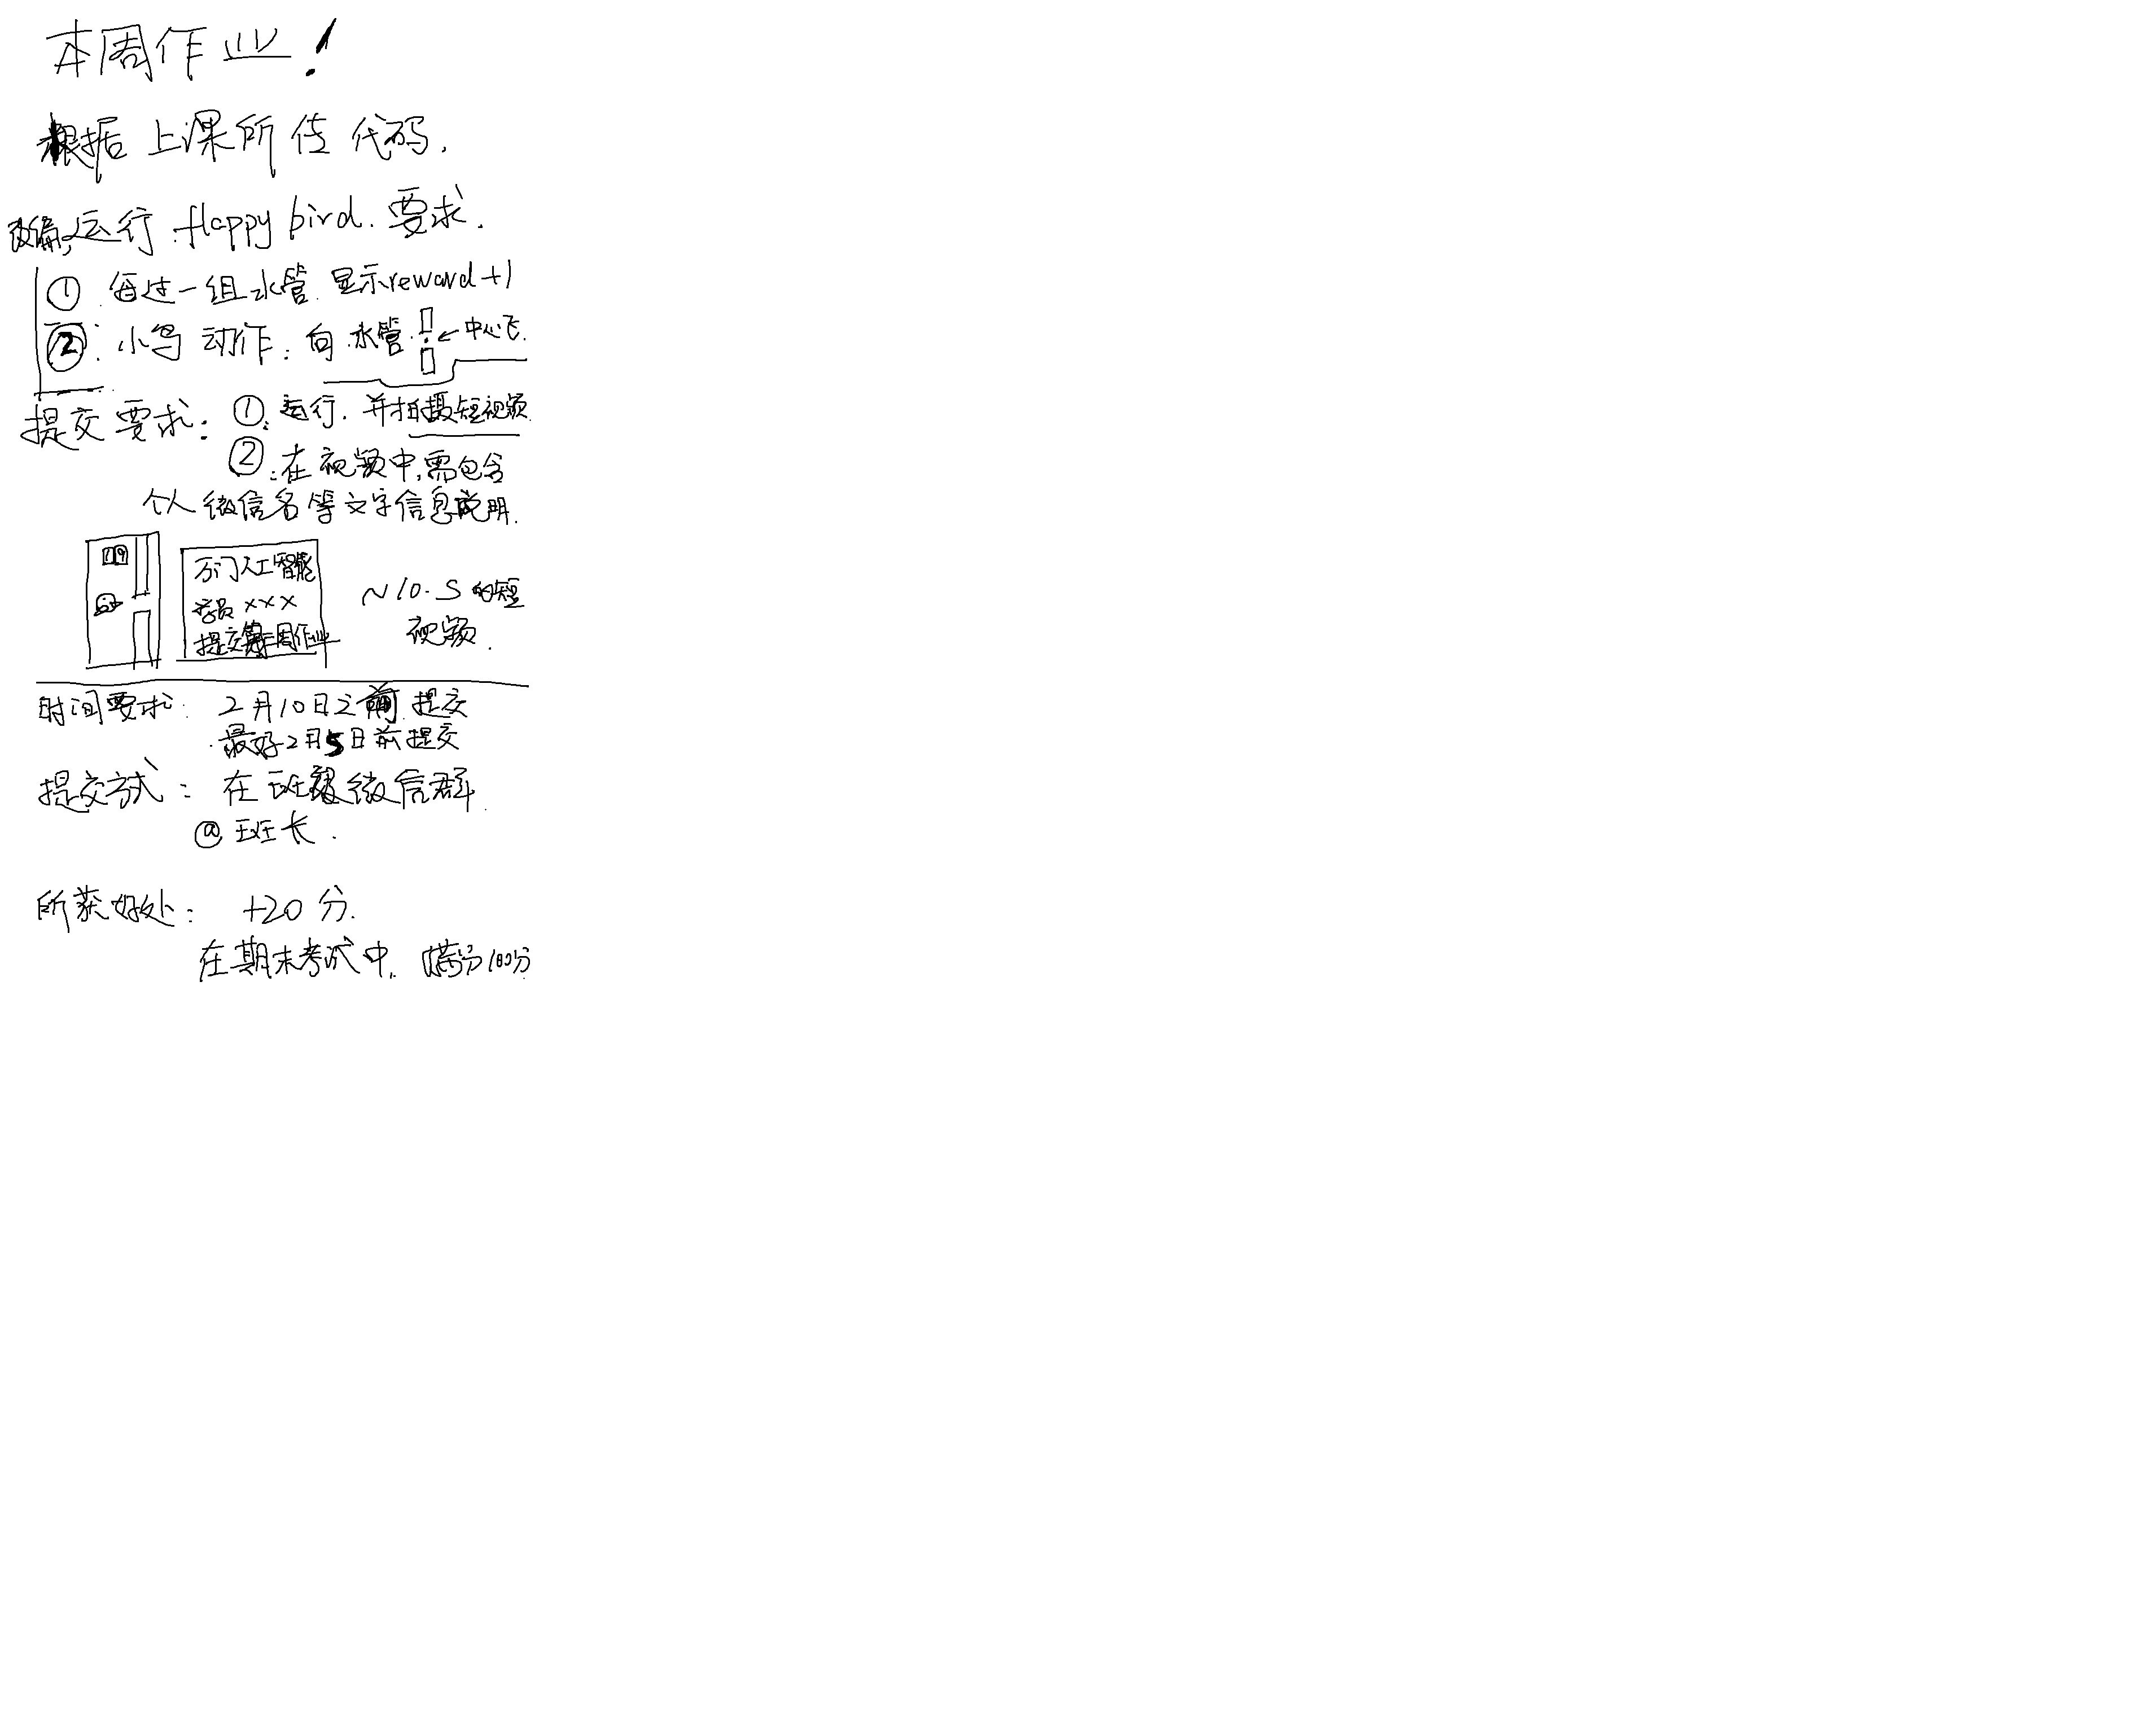 本周作业!
根据上课所传代码.
改编,运行 flappy bird. 要求.
① 每过一组水管. 显示reward+1
②: 小鸟动作: 向水管. ← 中心飞.
提交要求: ①: 运行. 并拍摄短视频.
②: 在视频中,需包含
个人微信名等文字信息说明.
19
万门人工智能
学员×××
提交第 周作业
~10.S的短
视频.
时间要求: 2月10日之前提交
最好2月5日前提交
提交方式: 在班级微信群.
@班长.
所获好处: +20分.
在期末考试中. 满分100分.